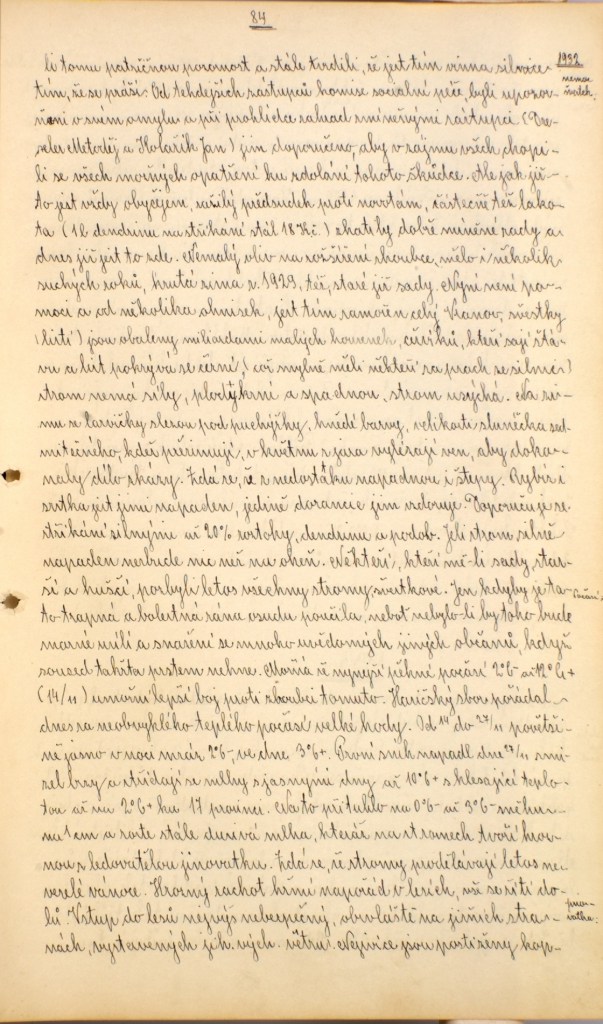 84
1932
li tomu patřičnou pozornost a stále tvrdili, že jest tím vinna silnice
nemoc švestek.
tím, že se práší. Od tehdejších zástupců komise sociální péče, byli upozor-
něni v svém omylu a při prohlídce zahrad zmíněnými zástupci (
Metoděj a Kolařík Jan) jim doporučeno, aby v zájmu všech, chopi-
li se všech možných opatření ku zdolání tohoto škůdce. Ale jak již
to jest vždy obyčejem, zažilý předsudek proti novotám, částečně též lako-
ta (1 l. dendrinu na stříkání stál 18 Kč.) zhatily dobře míněné rady a
dnes již jest to zde. Nemalý vliv na rozšíření zhoubce, mělo i několik
suchých roků, krutá zima r. 1929, též, staré již sady. Nyní není po-
moci a od několika ohnisek, jest tím zamořen celý Vranov, švestky
(listí) jsou obaleny miliardami malých housenek, červíků, kteří sají šťá-
vu a list pokrývá se černí, (což mylně měli někteří za prach se silnic)
strom nemá síly, plody krní a spadnou, strom usýchá. Na zi-
mu se larvičky slezou pod puchýřky, hnědé barvy, velikosti slunéčka sed-
mitečného, kdež přezimují, v květnu z jara vylézají ven, aby doko-
naly dílo zkázy. Zdá se, že z nedostatku napadnou i štepy. Rybíz i
srstka jest jimi napaden, jedině durancie jim vzdoruje. Doporučuje se
stříkání silnými až 20% roztoky, dendrinu a podob. Jeli strom silně
napaden nezbude nic než na oheň. Někteří, kteří mě-li sady star-
ší a hušší, pozbyli letos všechny stromy švestkové. Jen kdyby je ta-
to trapná a bolestná rána osudu poučila, neboť nebylo-li by toho bude
Počasí.
marné úsilí a snažení se mnoho uvědomných jiných občanů, když
soused takřka prstem nehne. Možná že nynější pěkné počasí 2°C- až 12°C+
(14/11) umožní lepší boj proti zhoubci tomuto. Hasičský sbor pořádal
dnes za neobvyklého teplého počasí velké hody. Od 14 do 27/11 povětši-
ně jasno v noci mráz 2°C-, ve dne 3°C+. První sníh napadl dne 27/11 zmi-
zel brzy a střídají se mlhy s jasnými dny až 10°C+ s klesající teplo-
tou až na 2°C+ ku 17 prosinci. Na to přituhlo na 0°C- až 3°C- sněhu
na 1 cm a roste stále dusivá mlha, kteráž na stromech tvoří hroz-
nou z ledovatělou jinovatku. Zdá se, že stromy prodělávají letos ne-
veselé vánoce. Hrozný rachot hřmí napořád v lesích, vše se řítí do-
lů. Vstup do lesů nejvýš nebezpečný, obzvláště na jižních stra-
jino-
vatka.
nách, vystavených jih. vých. větru. Nejvíce jsou postiženy kop-